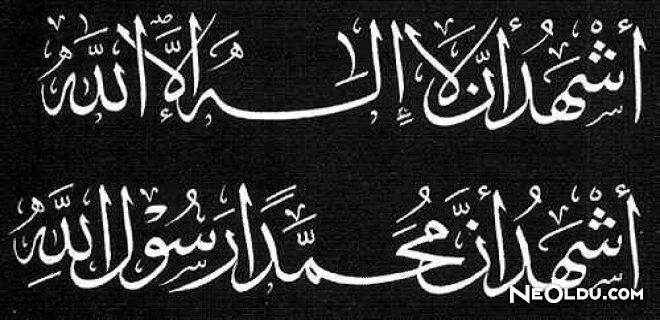 أَشْهَدُ أَنْ لَا إِلٰهَ إِلَّا اللّٰهُ
أَشْهَدُ أَنَّ مُحَمَّدًا رَسُوْلُ اللّٰهِ
NeOldu.com